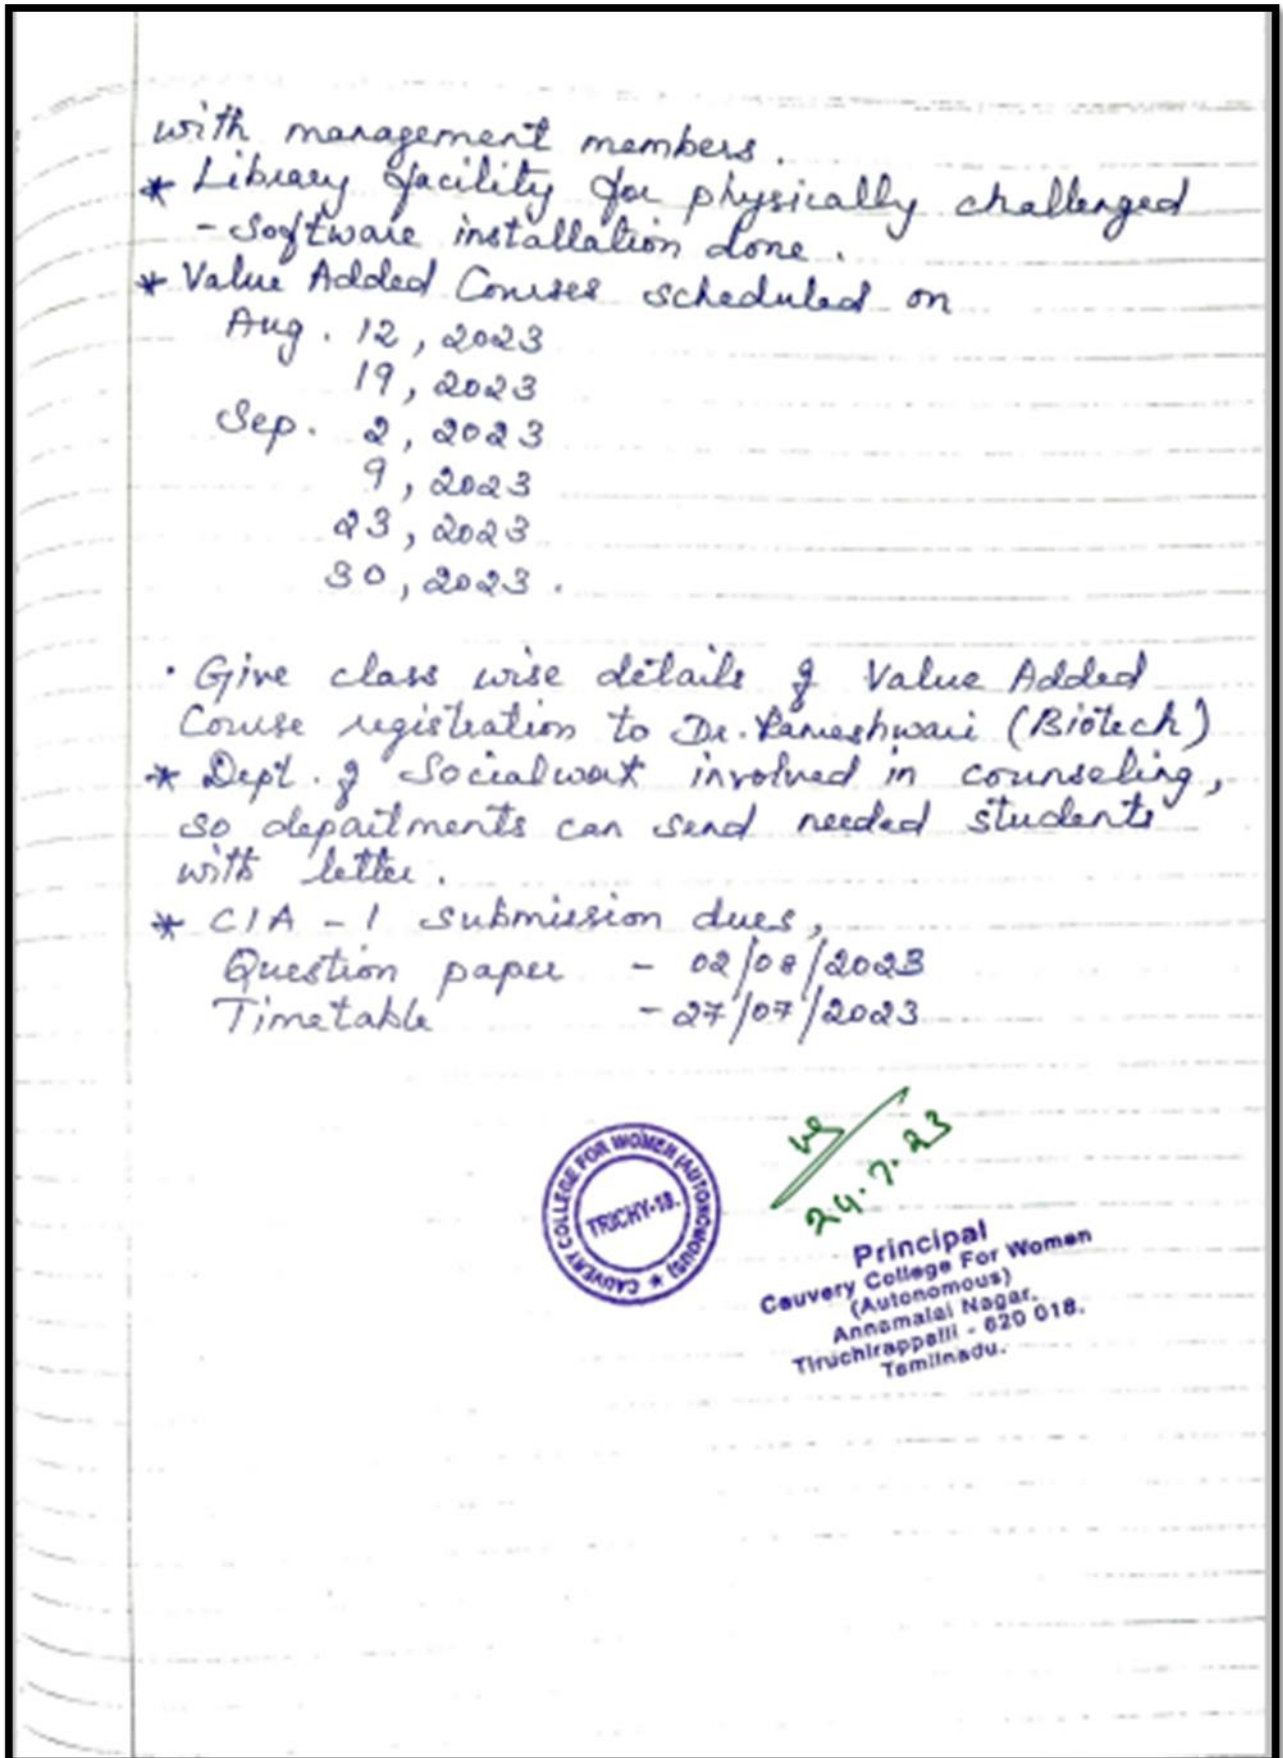 with management members.
* Library facility for physically challenged
- Software installation done.
* Value Added Courses scheduled on
Aug. 12, 2023
19, 2023
Sep. 2, 2023
9, 2023
23, 2023
30, 2023.
• Give class wise details of Value Added
Course registration to Dr. Rameshwari (Biotech)
* Dept. of Socialwork involved in counseling,
so departments can send needed students
with letter.
* CIA - 1 submission dues,
Question paper - 02/08/2023
Timetable - 27/07/2023
CAUVERY COLLEGE FOR WOMEN (AUTONOMOUS) *
TRICHY-18.
24.7.23
Principal
Cauvery College For Women
(Autonomous)
Annamalai Nagar,
Tiruchirappalli - 620 018.
Tamilnadu.